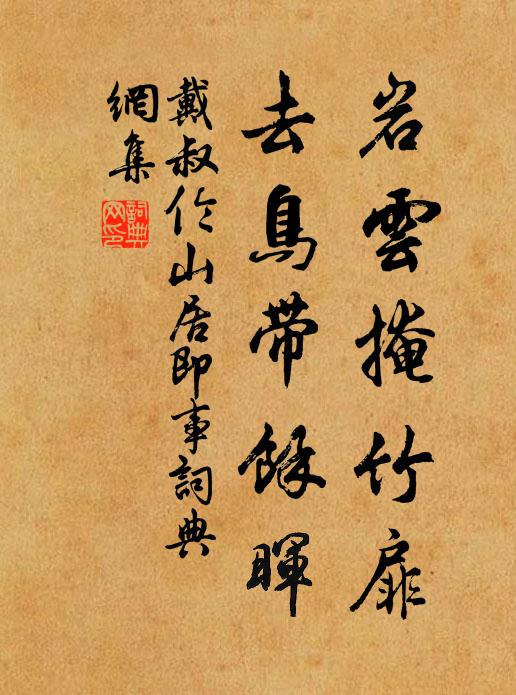 岩雲掩竹扉
去鳥帶餘暉
戴叔伦山居即事詞典
網集
詞典
网印